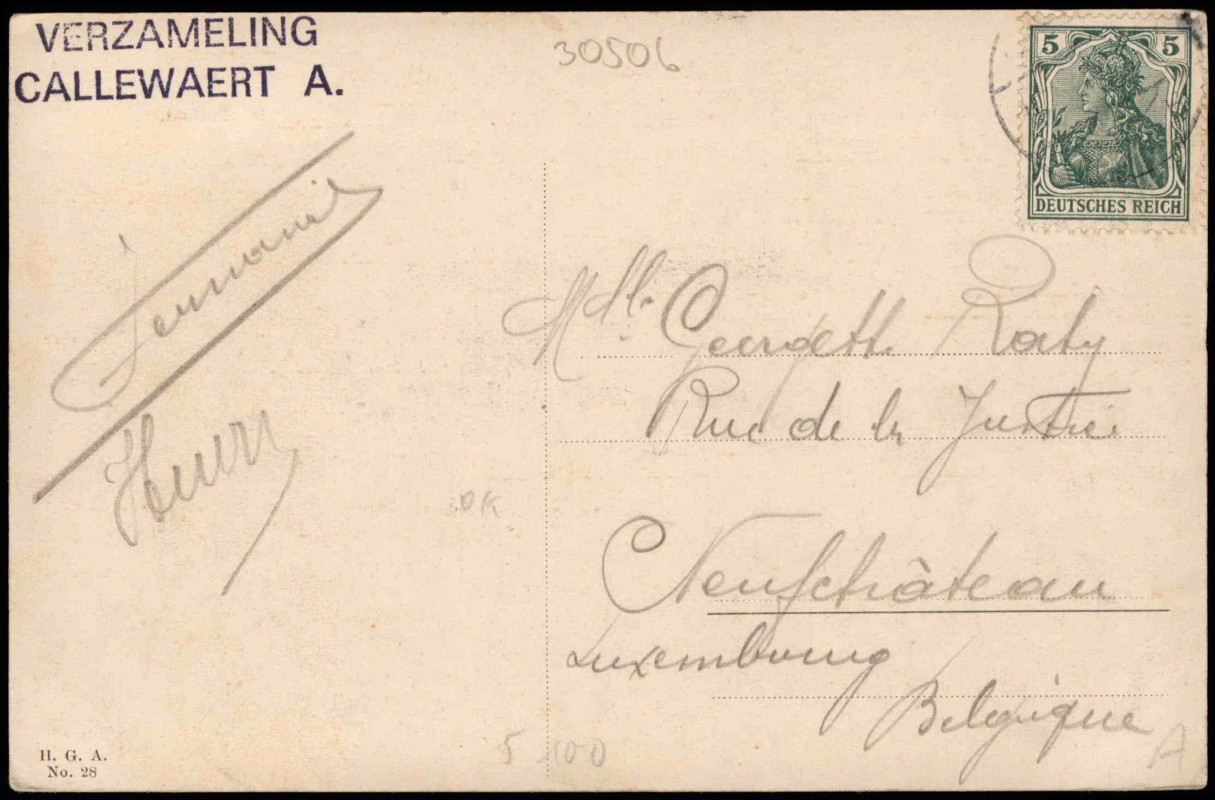 VERZAMELING
CALLEWAERT A.
30506
5 5
DEUTSCHES REICH
Mdlle Georgette Raty
Rue de la Justice
Neufchâteau
Luxembourg
Belgique
5 100
A
H. G. A.
No. 28